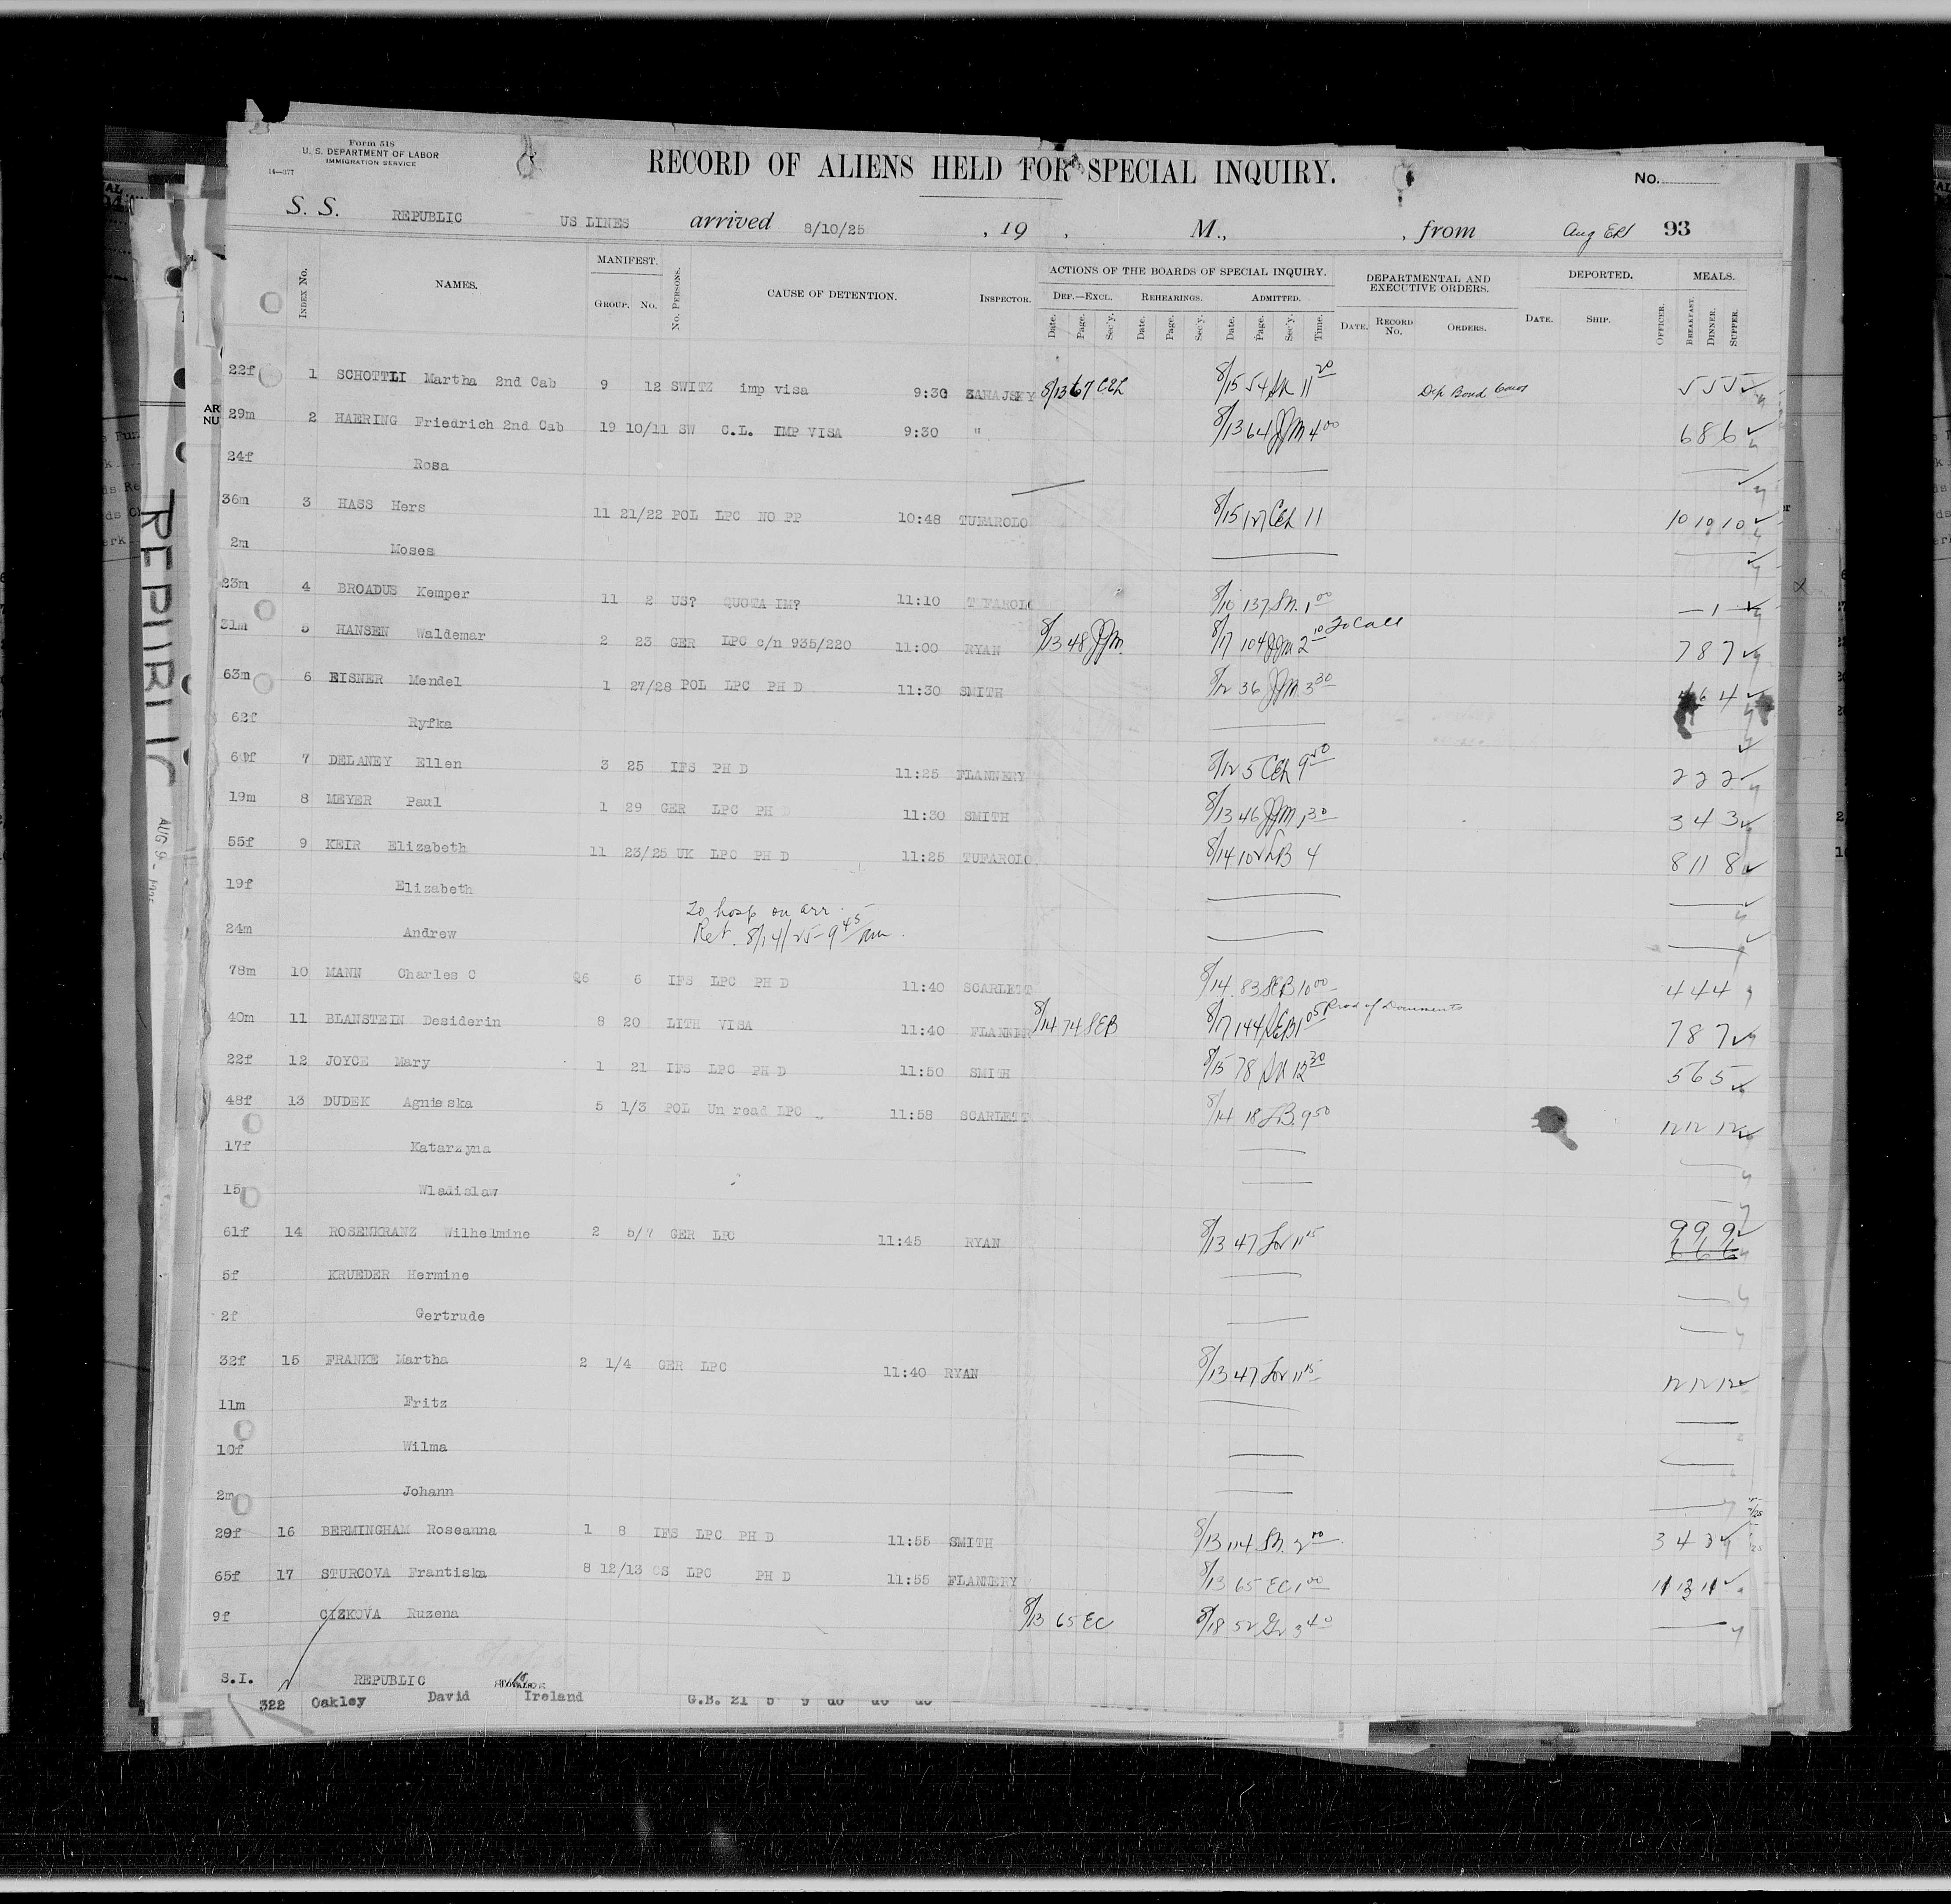 Form 518
U. S. DEPARTMENT OF LABOR
IMMIGRATION SERVICE
14—377
RECORD OF ALIENS HELD FOR SPECIAL INQUIRY.
No.
S. S. REPUBLIC US LINES arrived 8/10/25 , 19 , M., , from Aug 93
INDEX No. NAMES. MANIFEST. GROUP. No. No. PERSONS. CAUSE OF DETENTION. INSPECTOR. ACTIONS OF THE BOARDS OF SPECIAL INQUIRY. DEPARTMENTAL AND EXECUTIVE ORDERS. DEPORTED. MEALS.
DEF.—EXCL. REHEARINGS. ADMITTED.
Date. Page. Sec'y. Date. Page. Sec'y. Date. Page. Sec'y. Time. DATE. RECORD No. ORDERS. DATE. SHIP. OFFICER. BREAKFAST. DINNER. SUPPER.
22f 1 SCHOTTLI Martha 2nd Cab 9 12 SWITZ imp visa 9:30 ZAHAJSKY 8/13 67 CEL 8/15 54 11 20 Dep Bond 5 5 5
29m 2 HAERING Friedrich 2nd Cab 19 10/11 SW C.L. IMP VISA 9:30 " 8/13 64 JJM 4 00 6 8 6
24f Rosa
36m 3 HASS Hers 11 21/22 POL LPC NO PP 10:48 TUFAROLO 8/15 CEL 11 10 10 10
2m Moses
23m 4 BROADUS Kemper 11 2 US? QUOTA IM? 11:10 TUFAROLO 8/10 137 SN. 1 00 — 1 —
31m 5 HANSEN Waldemar 2 23 GER LPC c/n 935/220 11:00 RYAN 8/13 48 JJM. 8/17 104 JJM 2 10 To Call 7 8 7
63m 6 EISNER Mendel 1 27/28 POL LPC PH D 11:30 SMITH 8/12 36 JJM 3 30 4 6 4
62f Ryfka
60f 7 DELANEY Ellen 3 25 IFS PH D 11:25 FLANNERY 8/12 5 CEL 9 50 2 2 2
19m 8 MEYER Paul 1 29 GER LPC PH D 11:30 SMITH 8/13 46 JJM 1 30 3 4 3
55f 9 KEIR Elizabeth 11 23/25 UK LPC PH D 11:25 TUFAROLO 8/14 102 LB 4 8 11 8
19f Elizabeth
To hosp on arr.
24m Andrew Ret. 8/14/25 - 9 45 am.
78m 10 MANN Charles C 26 6 IFS LPC PH D 11:40 SCARLETT 8/14 83 SEB 10 00 4 4 4
40m 11 BLANSTEIN Desiderin 8 20 LITH VISA 11:40 FLANNER 8/14 74 SEB 8/17 144 SEB 1 05 Prod of Documents 7 8 7
22f 12 JOYCE Mary 1 21 IFS LPC PH D 11:50 SMITH 8/15 78 SN 12 30 5 6 5
48f 13 DUDEK Agnieska 5 1/3 POL Un read LPC 11:58 SCARLETT 8/14 18 LB. 9 50 12 12 12
17f Katarzyna
15 Wladislaw
61f 14 ROSENKRANZ Wilhelmine 2 5/7 GER LPC 11:45 RYAN 8/13 47 11 15 9 9 9
6 6 6
5f KRUEDER Hermine
2f Gertrude
32f 15 FRANKE Martha 2 1/4 GER LPC 11:40 RYAN 8/13 47 11 15 12 12 12
11m Fritz
10f Wilma
2m Johann
29f 16 BERMINGHAM Roseanna 1 8 IFS LPC PH D 11:55 SMITH 8/13 114 SN. 2 00 3 4 3
65f 17 STURCOVA Frantiska 8 12/13 CS LPC PH D 11:55 FLANNERY 8/13 65 EC 1 00 11 13 11
9f CIZKOVA Ruzena 8/13 65 EC 8/18 52 3 40
S.I. REPUBLIC
322 Oakley David Ireland G.B. 21 5 9 do do do
REPUBLIC
AUG 9 -